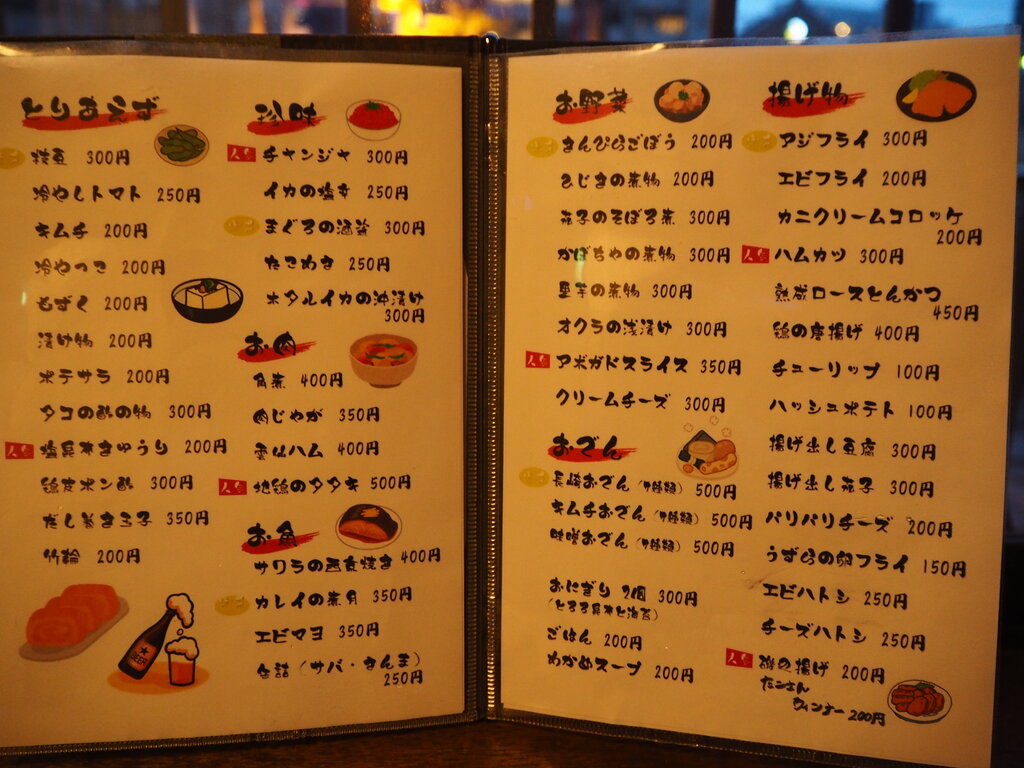 とりあえず
枝豆 300円
冷やしトマト 250円
キムチ 200円
冷やっこ 200円
もずく 200円
漬け物 200円
ポテサラ 200円
タコの酢の物 300円
人気 塩昆布きゅうり 200円
鶏皮ポン酢 300円
だし巻き玉子 350円
竹輪 200円
BEER
珍味
人気 チャンジャ 300円
イカの塩辛 250円
まぐろの酒盗 300円
たこわさ 250円
ホタルイカの沖漬け
300円
お肉
角煮 400円
肉じゃが 350円
雲仙ハム 400円
人気 地鶏のタタキ 500円
お魚
サワラの西京焼き 400円
カレイの煮付 350円
エビマヨ 350円
缶詰（サバ・さんま）
250円
お野菜
きんぴらごぼう 200円
ひじきの煮物 200円
茄子のそぼろ煮 300円
かぼちゃの煮物 300円
里芋の煮物 300円
オクラの浅漬け 300円
人気 アボガドスライス 350円
クリームチーズ 300円
おでん
長崎おでん（7種類） 500円
キムチおでん（7種類） 500円
味噌おでん（7種類） 500円
おにぎり 2個 300円
（とろろ昆布と海苔）
ごはん 200円
わかめスープ 200円
揚げ物
アジフライ 300円
エビフライ 200円
カニクリームコロッケ
200円
人気 ハムカツ 300円
熟成ロースとんかつ
450円
鶏の唐揚げ 400円
チューリップ 100円
ハッシュポテト 100円
揚げ出し豆腐 300円
揚げ出し茄子 300円
パリパリチーズ 200円
うずらの卵フライ 150円
エビハトシ 250円
チーズハトシ 250円
人気 磯の揚げ 200円
ウィンナー 200円